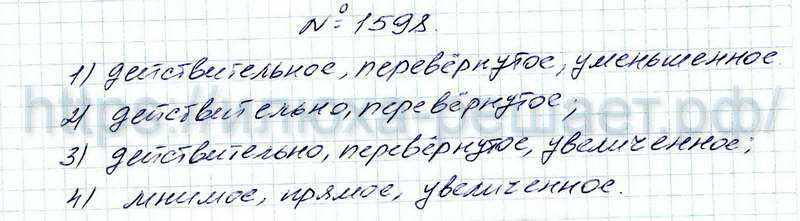 № 1598.
1) действительное, перевёрнутое, уменьшенное.
2) действительно, перевёрнутое;
3) действительно, перевёрнутое, увеличенное;
4) мнимое, прямое, увеличенное.